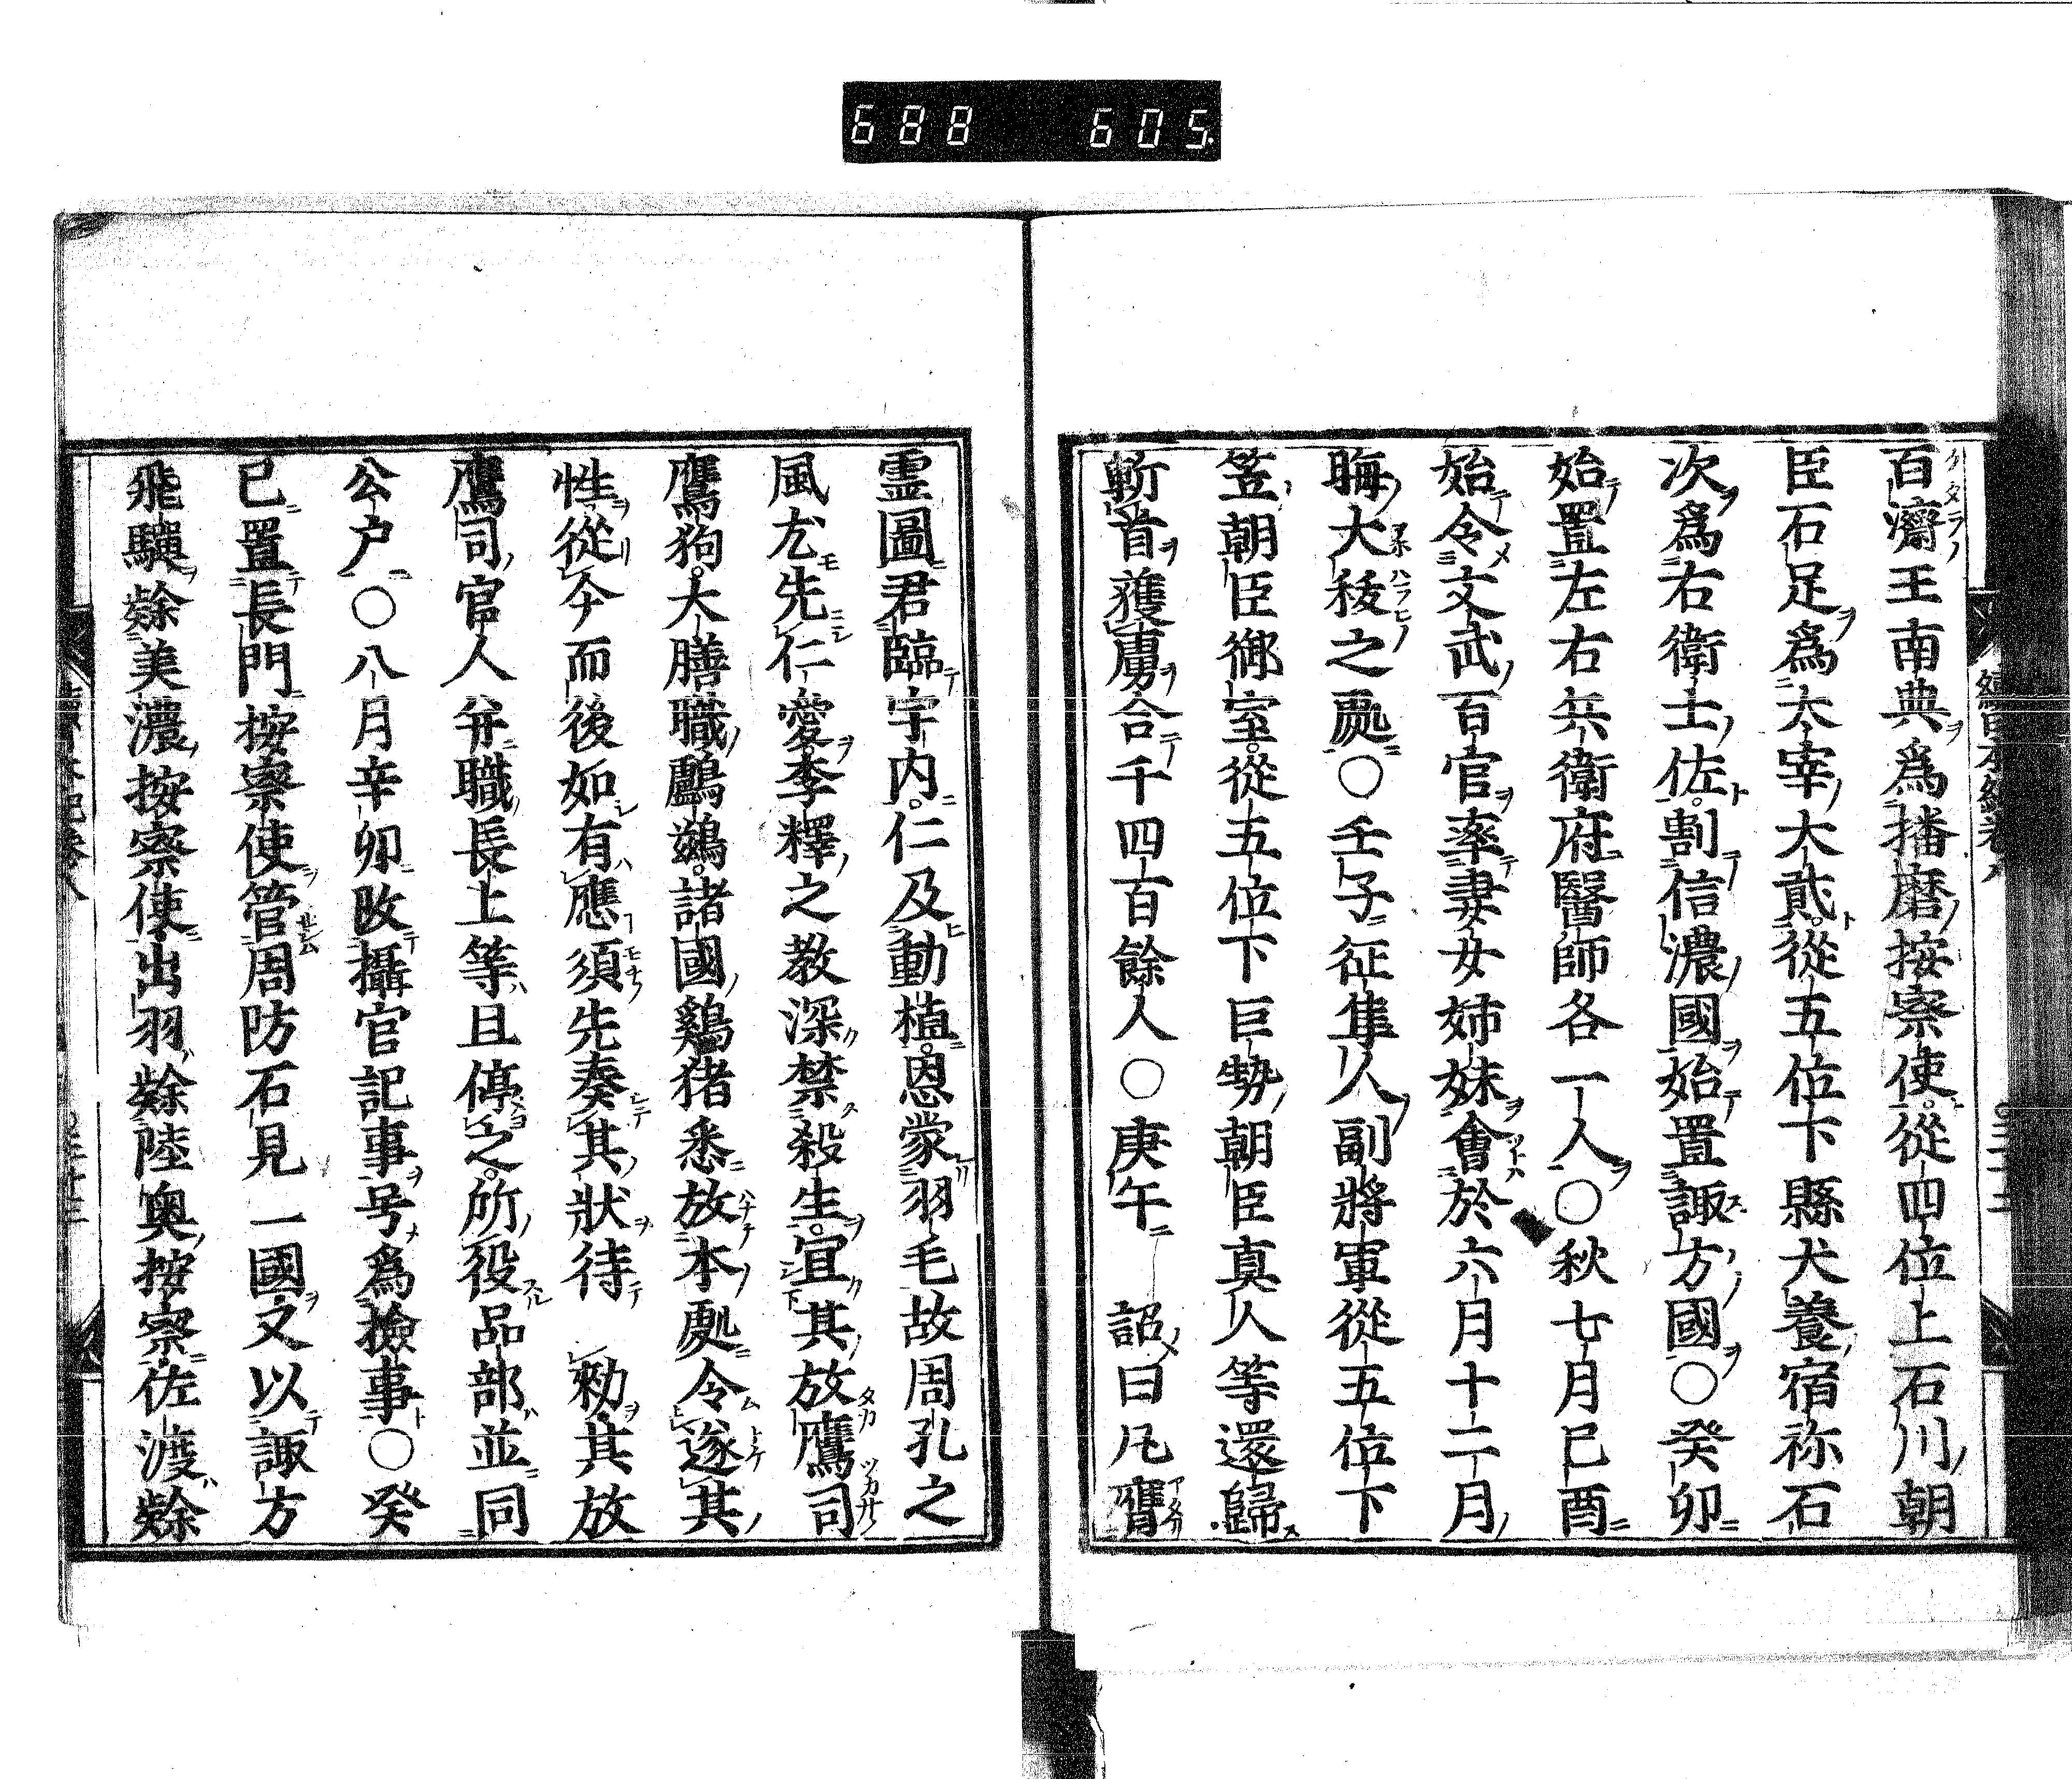 688 605
百濟王南典爲播磨按察使從四位上石川朝
臣石足爲太宰大貳從五位下縣犬養宿祢石
次爲右衛士佐割信濃國始置諏方國○癸卯
始置左右兵衛府醫師各一人○秋七月己酉
始令文武百官率妻女姉妹會於六月十二月
晦大祓之處○壬子征隼人副將軍從五位下
笠朝臣御室從五位下巨勢朝臣真人等還歸
斬首獲虜合千四百餘人○庚午　詔曰凡膺
霊圖君臨宇内仁及動植恩蒙羽毛故周孔之
風尤先仁愛李釋之教深禁殺生宜其放鷹司
鷹狗大膳職鸕鷀諸國鷄猪悉放本處令遂其
性從今而後如有應須先奏其狀待　勑其放
鷹司官人并職長上等且停之所役品部並同
公户○八月辛卯改攝官記事号爲撿事○癸
巳置長門按察使管周防石見一國又以諏方
飛驒隸美濃按察使出羽隸陸奥按察佐渡隸